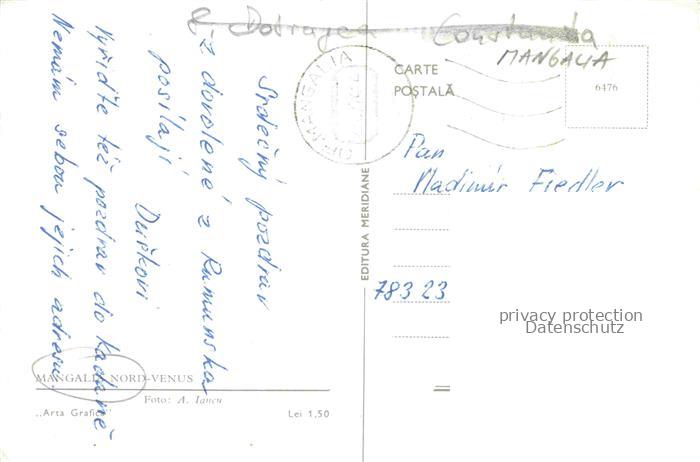 Dobrogea Constanta
MANGALIA
OR. MANGALIA
CARTE
POȘTALĂ
6476
Srdečný pozdrav
z dovolené z Rumunska
posílají
Duškovi
Vyřiďte též pozdrav do Kadaně.
Nemám sebou jejich adresu.
EDITURA MERIDIANE
Pan
Vladimír Fiedler
783 23
privacy protection
Datenschutz
MANGALIA NORD-VENUS
Foto: A. Iancu
„Arta Grafică
Lei 1,50